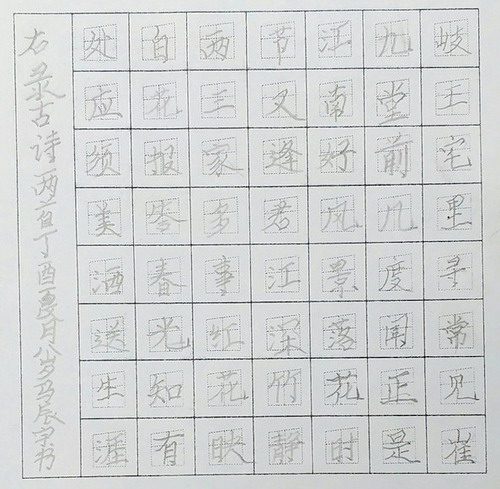 岐王宅里寻常见崔
九堂前几度闻正是
江南好风景落花时
节又逢君江深竹静
两三家多事红花映
自花报答春光知有
处应须美酒送生涯
右录古诗两首丁酉夏月八岁辰书